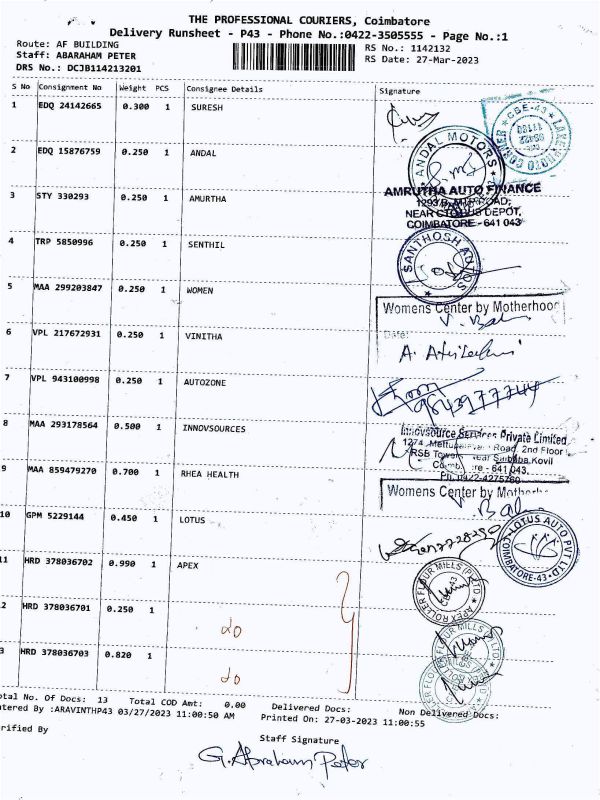 THE PROFESSIONAL COURIERS, Coimbatore
Delivery Runsheet - P43 - Phone No.:0422-3505555 - Page No.:1
Route: AF BUILDING
RS No.: 1142132
Staff: ABARAHAM PETER
RS Date: 27-Mar-2023
DRS No.: DCJB114213201
S No Consignment No Weight PCS Consignee Details Signature
1 EDQ 24142665 0.300 1 SURESH
CBE-43
2 EDQ 15876759 0.250 1 ANDAL
ANDAL MOTORS
3 STY 330293 0.250 1 AMURTHA
AMRUTHA AUTO FINANCE
COIMBATORE - 641 043
4 TRP 5850996 0.250 1 SENTHIL
SANTHOSH AUTOS
5 MAA 299203847 0.250 1 WOMEN
Womens Center by Motherhood
Date:
6 VPL 217672931 0.250 1 VINITHA
7 VPL 943100998 0.250 1 AUTOZONE
8 MAA 293178564 0.500 1 INNOVSOURCES
Innovsource Services Private Limited
9 MAA 859479270 0.700 1 RHEA HEALTH
Womens Center by
10 GPM 5229144 0.450 1 LOTUS
LOTUS AUTO PVT LTD
COIMBATORE-43
11 HRD 378036702 0.990 1 APEX
APEX ROLLER FLOUR MILLS (P) LTD
2 HRD 378036701 0.250 1
do
3 HRD 378036703 0.820 1
do
otal No. Of Docs: 13 Total COD Amt: 0.00 Delivered Docs: Non Delivered Docs:
ntered By :ARAVINTHP43 03/27/2023 11:00:50 AM Printed On: 27-03-2023 11:00:55
rified By
Staff Signature
G. Abraham Peter